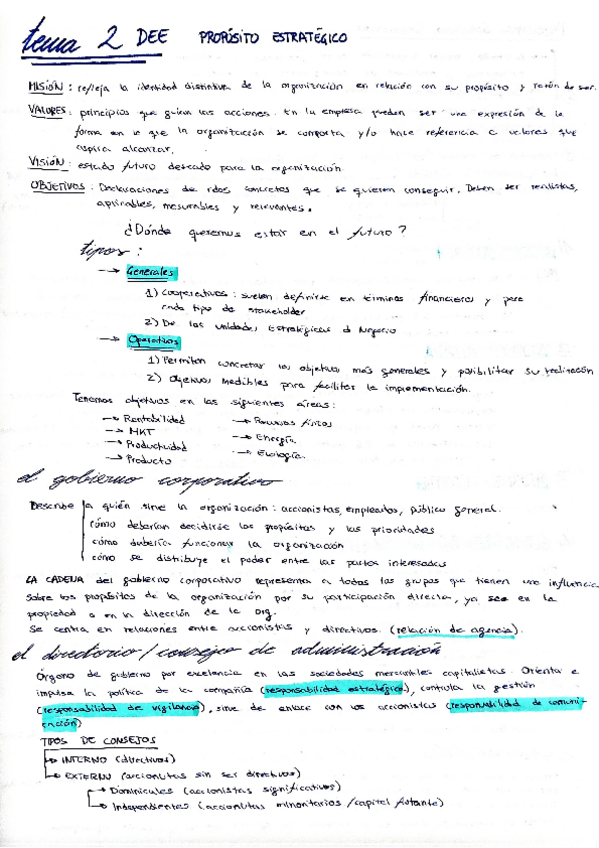 tema 2 DEE PROPÓSITO ESTRATÉGICO
MISIÓN: refleja la identidad distintiva de la organización en relación con su propósito y razón de ser.
VALORES: principios que guían las acciones. En la empresa pueden ser una expresión de la
forma en la que la organización se comporta y/o hace referencia a valores que
aspira alcanzar.
VISIÓN: estado futuro deseado para la organización
OBJETIVOS: Declaraciones de rdos concretos que se quieren conseguir. Deben ser realistas,
aplicables, mesurables y relevantes.
¿Dónde queremos estar en el futuro?
tipos:
→ Generales
1) Cooperativos: suelen definirse en términos financieros y para
cada tipo de stakeholder
2) De las unidades Estratégicas d Negocio
→ Operativos
1) Permiten concretar los objetivos más generales y posibilitar su realización
2) Objetivos medibles para facilitar la implementación.
Tenemos objetivos en las siguientes áreas:
→ Rentabilidad → Recursos físicos
→ MKT → Energía
→ Productividad → Ecología
→ Producto
el gobierno corporativo
Describe a quién sirve la organización: accionistas, empleados, público general.
cómo deberían decidirse los propósitos y las prioridades
cómo debería funcionar la organización
cómo se distribuye el poder entre las partes interesadas
LA CADENA del gobierno corporativo representa a todos los grupos que tienen una influencia
sobre los propósitos de la organización por su participación directa, ya sea en la
propiedad o en la dirección de la org.
Se centra en relaciones entre accionistas y directivos. (relación de agencia).
el directorio/consejo de administración
Órgano de gobierno por excelencia en las sociedades mercantiles capitalistas. Orienta e
impulsa la política de la compañía (responsabilidad estratégica), controla la gestión
(responsabilidad de vigilancia), sirve de enlace con los accionistas (responsabilidad de comuni-
cación)
TIPOS DE CONSEJOS
→ INTERNO (directivos)
→ EXTERNO (accionistas sin ser directivos)
→ Dominicales (accionistas significativos)
→ Independientes (accionistas minoritarios / capital flotante)